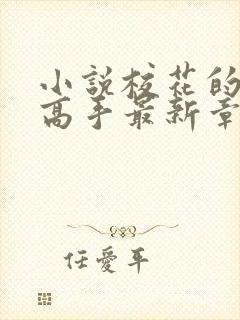 小說校花的
高手最新章
任愛平